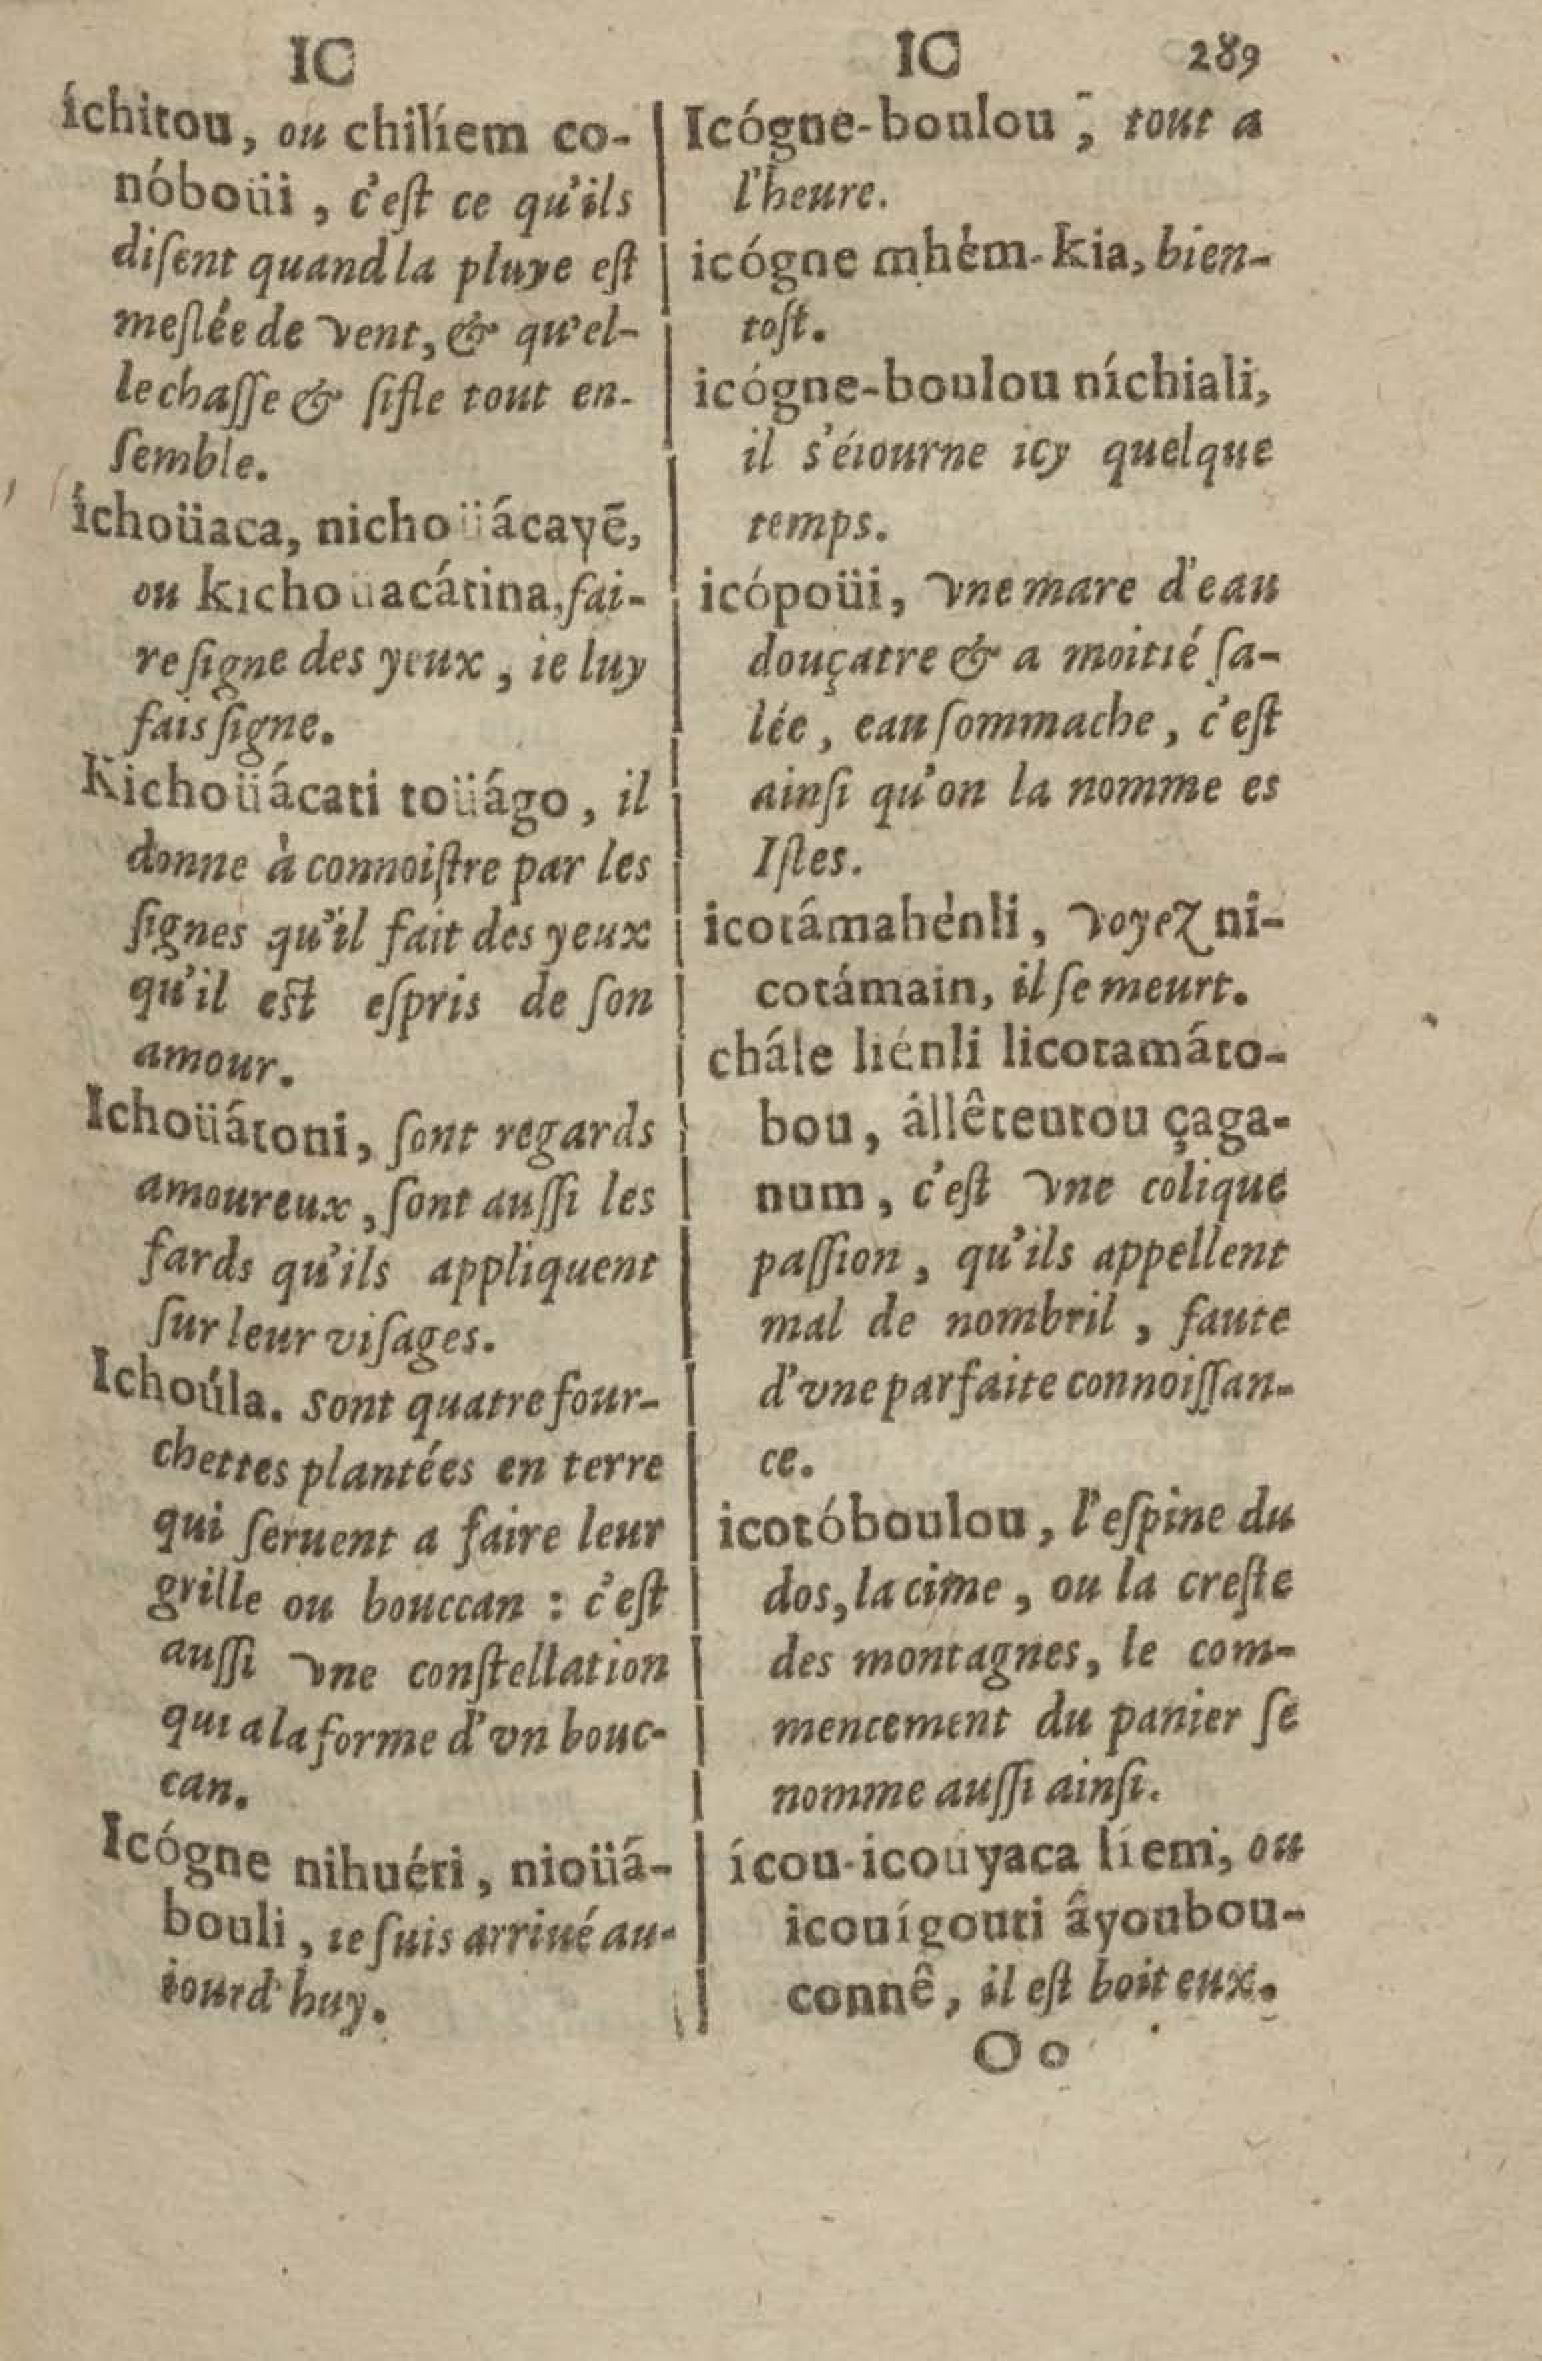 IC
íchitou, ou chilíem co-
nóboüi, c'eſt ce qu'ils
diſent quand la pluye eſt
meſlée de vent, & qu'el-
le chaſſe & ſifle tout en-
ſemble.
íchoüaca, nichoüácayē,
ou kichoüacátina, fai-
re ſigne des yeux, ie luy
fais ſigne.
Kichoüácati toüágo, il
donne à connoiſtre par les
ſignes qu'il fait des yeux
qu'il eſt eſpris de ſon
amour.
Ichoüátoni, ſont regards
amoureux, ſont auſſi les
fards qu'ils appliquent
ſur leur viſages.
Ichoúla. sont quatre four-
chettes plantées en terre
qui ſeruent a faire leur
grille ou bouccan : c'eſt
auſſi vne conſtellation
qui a la forme d'vn bouc-
can.
Icógne nihuéri, nioüá-
bouli, ie ſuis arriué au-
iourd'huy.
IC 289
Icógne-boulou, tout a
l'heure.
icógne mhém-kia, bien-
toſt.
icógne-boulou níchiali,
il s'éiourne icy quelque
temps.
icópoüi, vne mare d'eau
douçatre & a moitié ſa-
lée, eau ſommache, c'eſt
ainſi qu'on la nomme es
Iſles.
icotámahénli, voyez ni-
cotámain, il ſe meurt.
chále liénli licotamáto-
bou, állêteutou çaga-
num, c'eſt vne colique
paſſion, qu'ils appellent
mal de nombril, faute
d'vne parfaite connoiſſan-
ce.
icotóboulou, l'eſpine du
dos, la cime, ou la creſte
des montagnes, le com-
mencement du panier ſe
nomme auſſi ainſi.
ícou-icouyaca líem, ou
icouígouti âyoubou-
connê, il eſt boiteux.
Oo